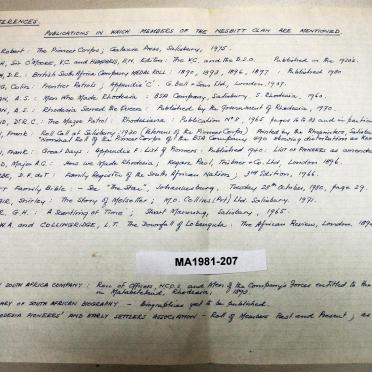 FERENCES.
PUBLICATIONS IN WHICH MEMBERS OF THE NESBITT CLAN ARE MENTIONED.
Robert : The Pioneer Corps; Galaxie Press, Salisbury, 1975.
H, Sir O'MOORE, V.C. and HUMPHRIS, E.M. Editors : The V.C. and the D.S.O. Published in the 1920's.
, D.R. : British South Africa Company MEDAL ROLL : 1890, 1893, 1896, 1897 : Published 1980
, Colin : Frontier Patrols; Appendix 'C'. G. Bell & Sons Ltd, London, 1938.
AN, A.S. : Men Who Made Rhodesia : BSA Company, Salisbury, S. Rhodesia, 1960.
AN, A.S. : Rhodesia Served the Queen : Published by the Government of Rhodesia, 1970.
D, D.R.C. : The Major Patrol : Rhodesiana : Publication No 8, 1965 pages 16 to and in particu
, Frank : Roll Call at Salisbury : 1920 (Reunion of the Pioneer Corps) Printed by the Salisb
Nominal Roll of the Pioneer Corps of the BSA Company 1890
, Frank : Great Days : Appendix F : List of Pioneers : Published 1940 : LIST OF PIONEERS as amended
D, Major A.G. : How we Made Rhodesia; Kegan Paul, Trübner & Co. Ltd, London 1896.
BE, D.F. du T : Family Register of the South African Nation; 3rd Edition, 1966.
TT Family Bible : - See "The Star", Johannesburg, Tuesday 28th October, 1980, page 29.
AIR, Shirley : The Story of Melsetter; M.O. Collins (Pvt) Ltd. Salisbury, 1971.
R, G.H. : A Scantling of Time; Stuart Manning, Salisbury, 1965.
W.A. and COLLINGRIDGE, L.T. The Downfall of Lobengula : The African Review, London, 189
MA1981-207
SOUTH AFRICA COMPANY : Roll of Officers, N.C.O.s and Men of the Company's Forces entitled to the
in Matabeleland, Rhodesia, 1893.
ARY OF SOUTH AFRICAN BIOGRAPHY - Biographies yet to be published.
ODESIA PIONEERS' AND EARLY SETTLERS ASSOCIATION - Roll of Members Past and Present; as